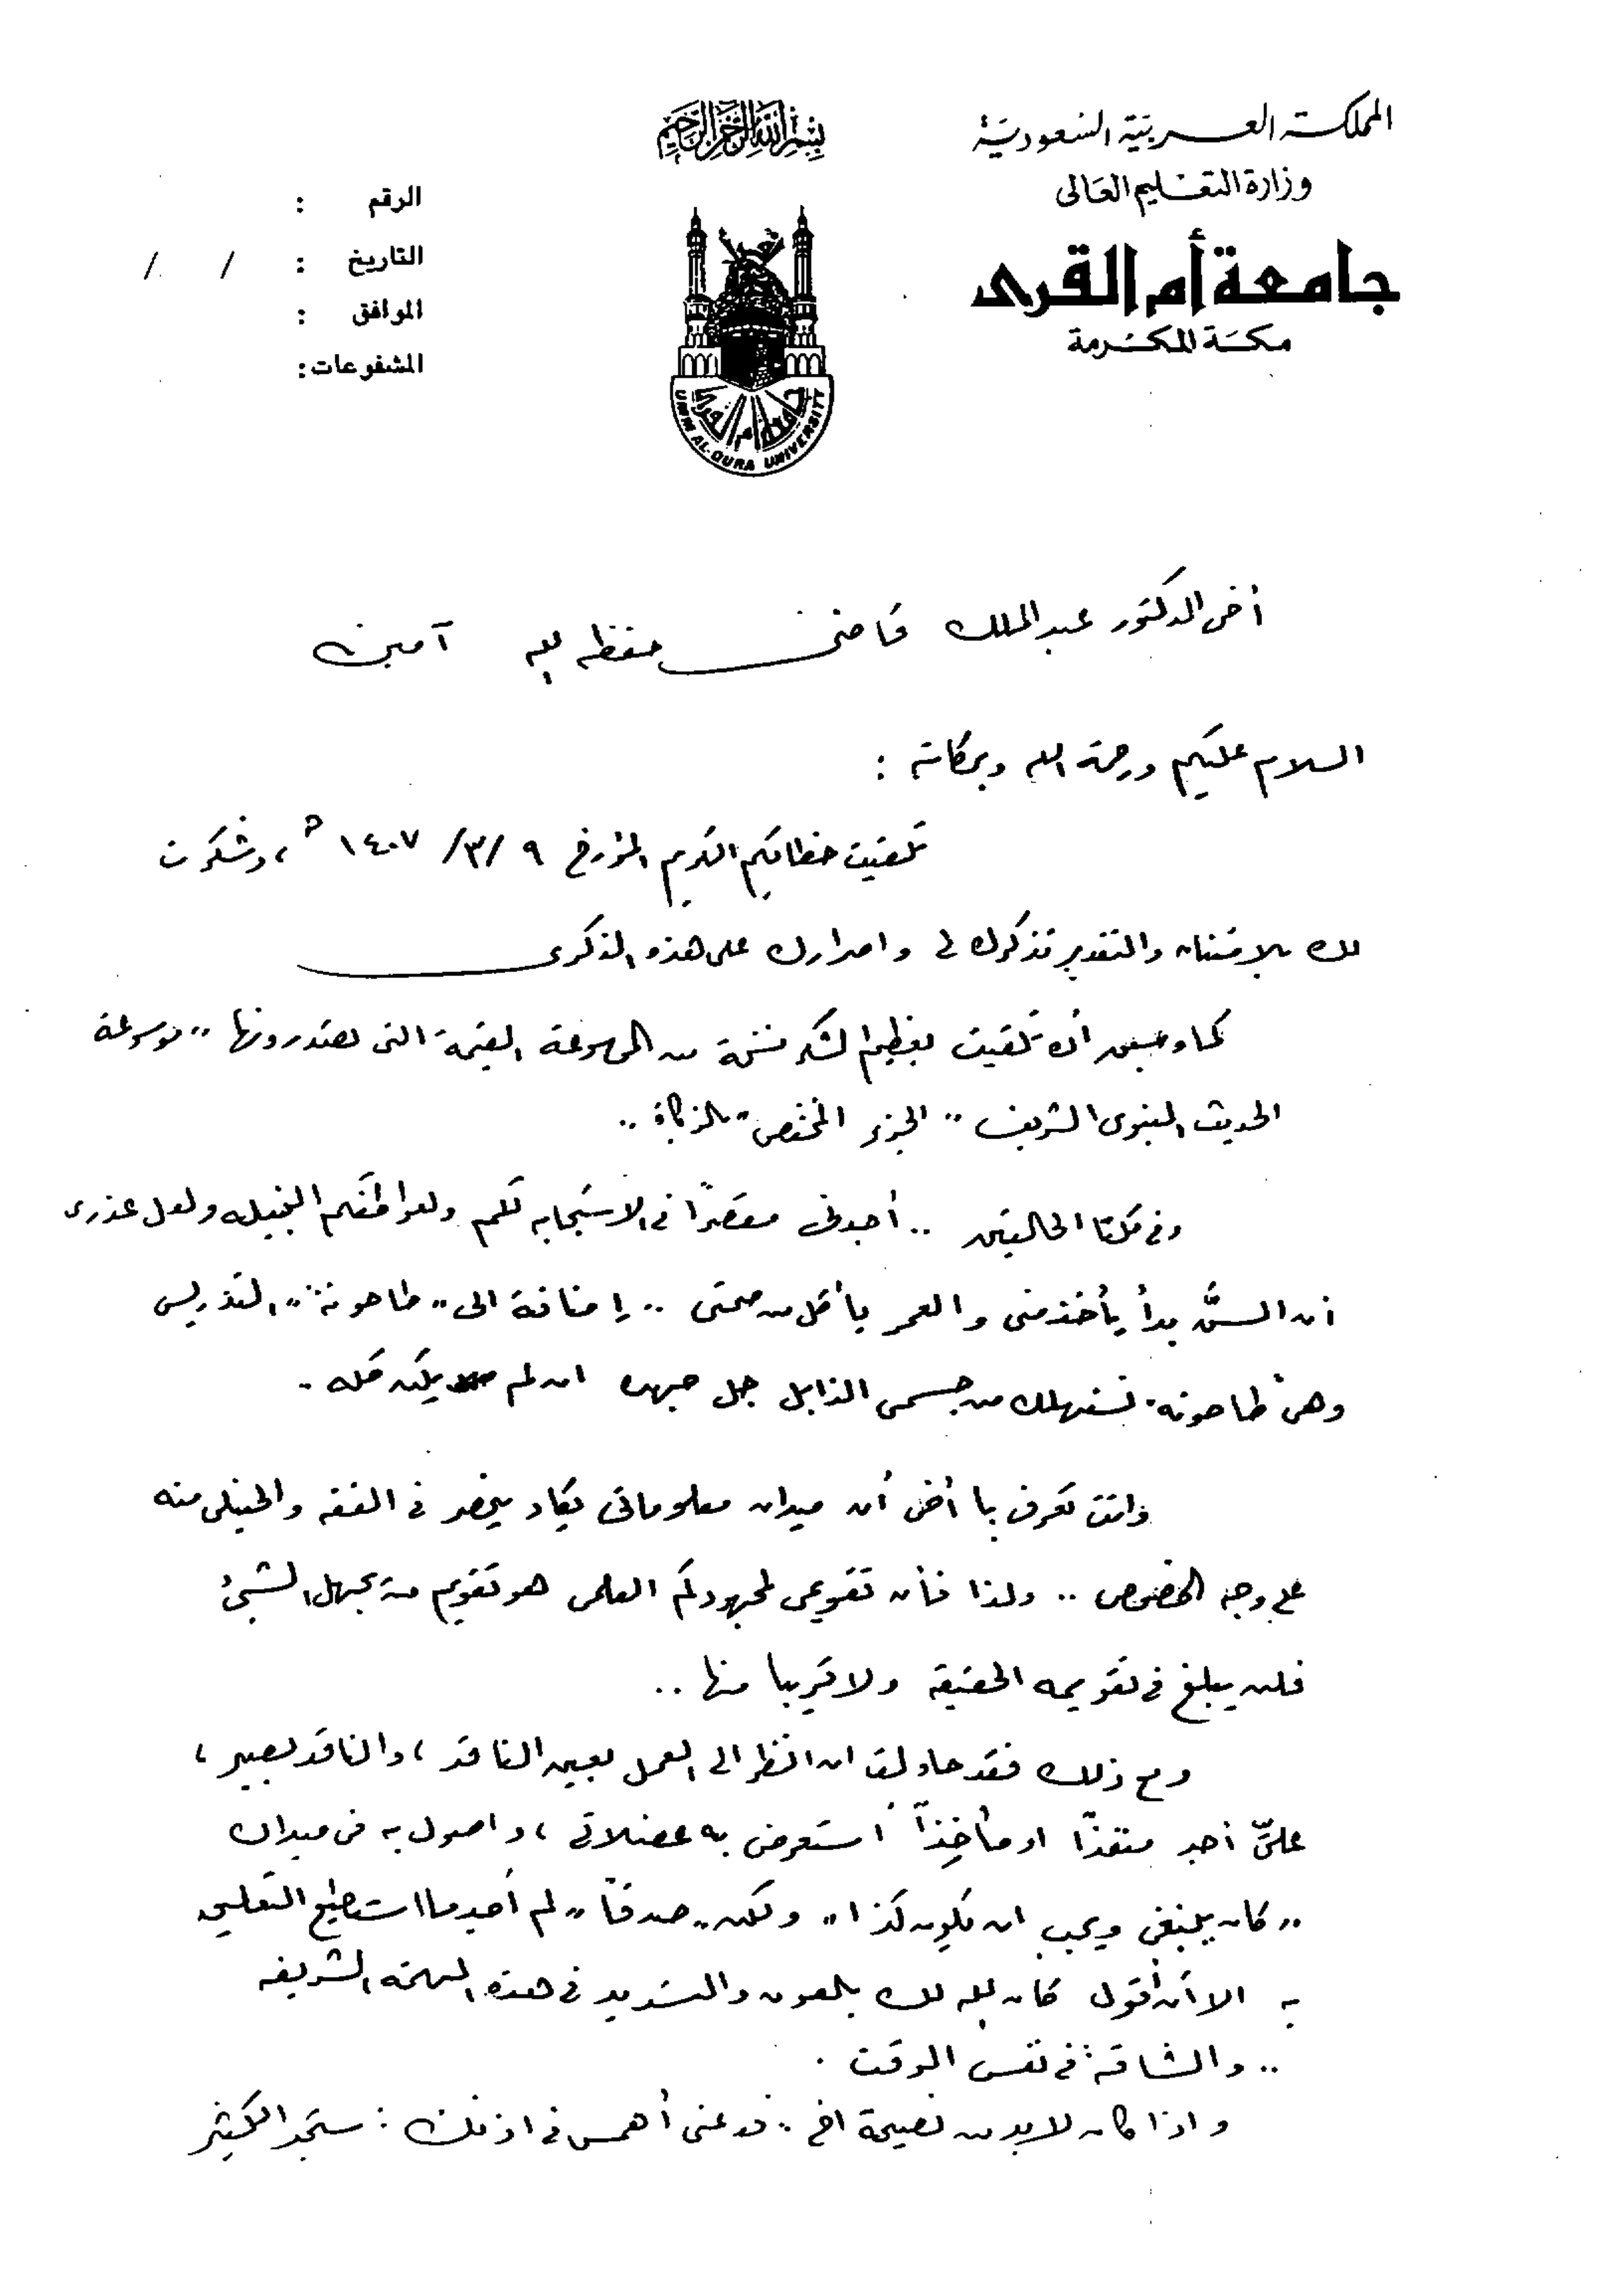 بسم الله الرحمن الرحيم
المملكة العربية السعودية
وزارة التعليم العالى
جامعة أم القرى
مكة المكرمة
الرقم :
التاريخ : / /
الموافق :
المشفوعات :
UMM AL-QURA UNIVERSITY
جامعة أم القرى
أخى الدكتور عبد الملك قاضى حفظه الله آمين
السلام عليكم ورحمة الله وبركاته :
تلقيت خطابكم الكريم المؤرخ ٩ /٣/ ١٤٠٧ هـ ، وشكرت
لك بالامتنان والتقدير تذكرك لى واصرارك على هذه الذكرى
كما وسبق أن تلقيت بعظيم الشكر نسخة من الموسوعة القيمة التى تصدرونها " موسوعة
الحديث النبوى الشريف " الجزء المختص بالزكاة ..
وفى كلتا الحالتين .. أجدنى مقصرًا فى الاستجابه لكم ولعواطفكم النبيله ولعل عذرى
أن السنَّ بدأ يأخذ منى والعمر يأكل من صحتى .. إضافة الى " طاحونة " التدريس
وهى طاحونه تستهلك من جسمى الذابل جل جهده ان لم يكن كله .
وانت تعرف يا أخى أن ميدان معلوماتى يكاد ينحصر فى الفقه والحنبلى منه
على وجه الخصوص .. ولذا فأن تقويمى لمجهودكم العلمى هو تقويم من يجهل الشيئ
فلن يبلغ فى تقويمه الحقيقة ولا قريبا منها ..
ومع ذلك فقد حاولت ان انظر الى العمل بعين الناقد ، والناقد بصير ،
علىّ أجد منفذًا او مأخِذاً أستعرض به عضلاتى ، واصول به فى ميدان
" كان ينبغى ويجب ان يكون كذا " ولكن " صدقاً " لم أجد ما استطيع التعليق
به الا أن أقول كان الله لك بالعون والتسديد فى هذه المهمة الشريفه
.. والشاقة فى نفس الوقت .
واذا كان لابد من نصيحة اخ .. فدعنى أهمس فى اذنك : ستجد الكثير